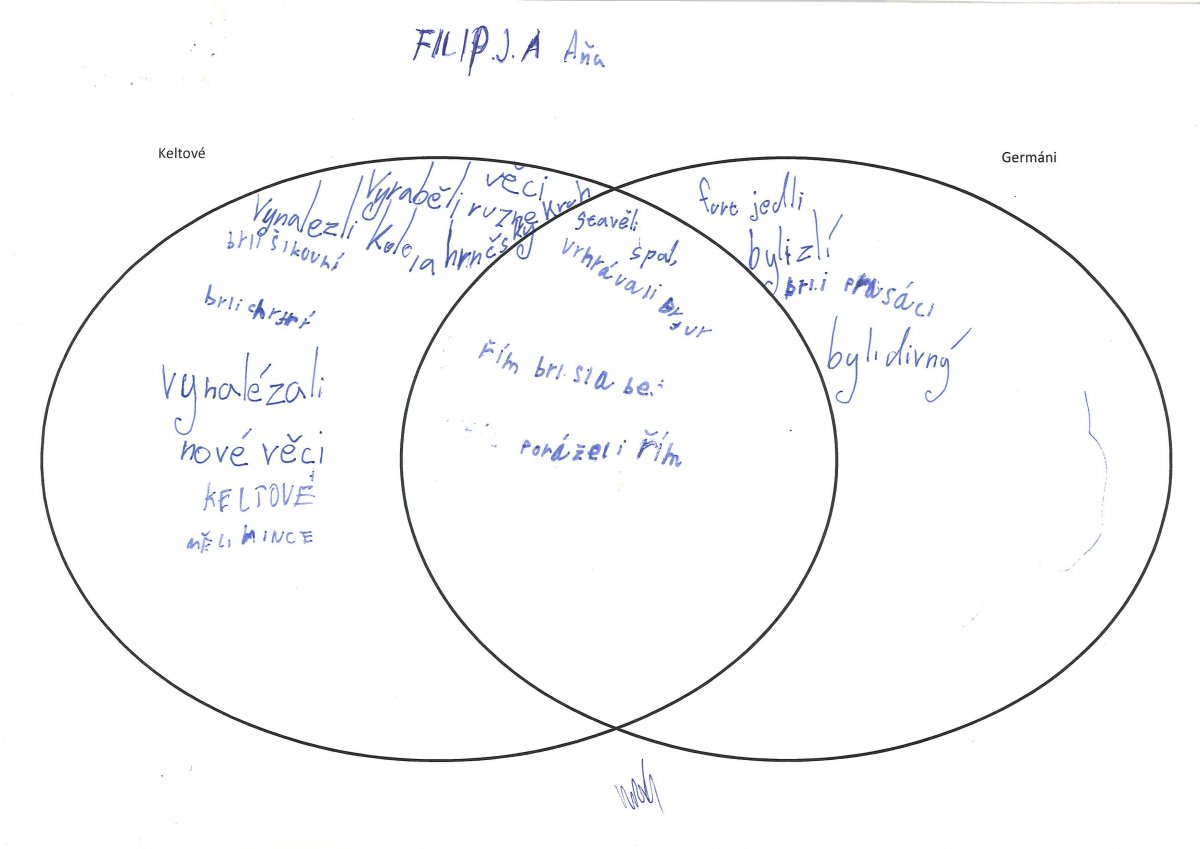 FILIP.J.A Aňa
Keltové
Germáni
Vyraběli ruzne věci
Vynalezli kolo a hrnčský kruh
brli šikovní
brli chrtrí
vynalézali
nové věci
KELTOVÉ
MĚLI MINCE
stavěli
spal,
vrhrávali
řím brli slabeí
poráželi řím
fort jedli
byli zlí
brli prusáci
byli divný